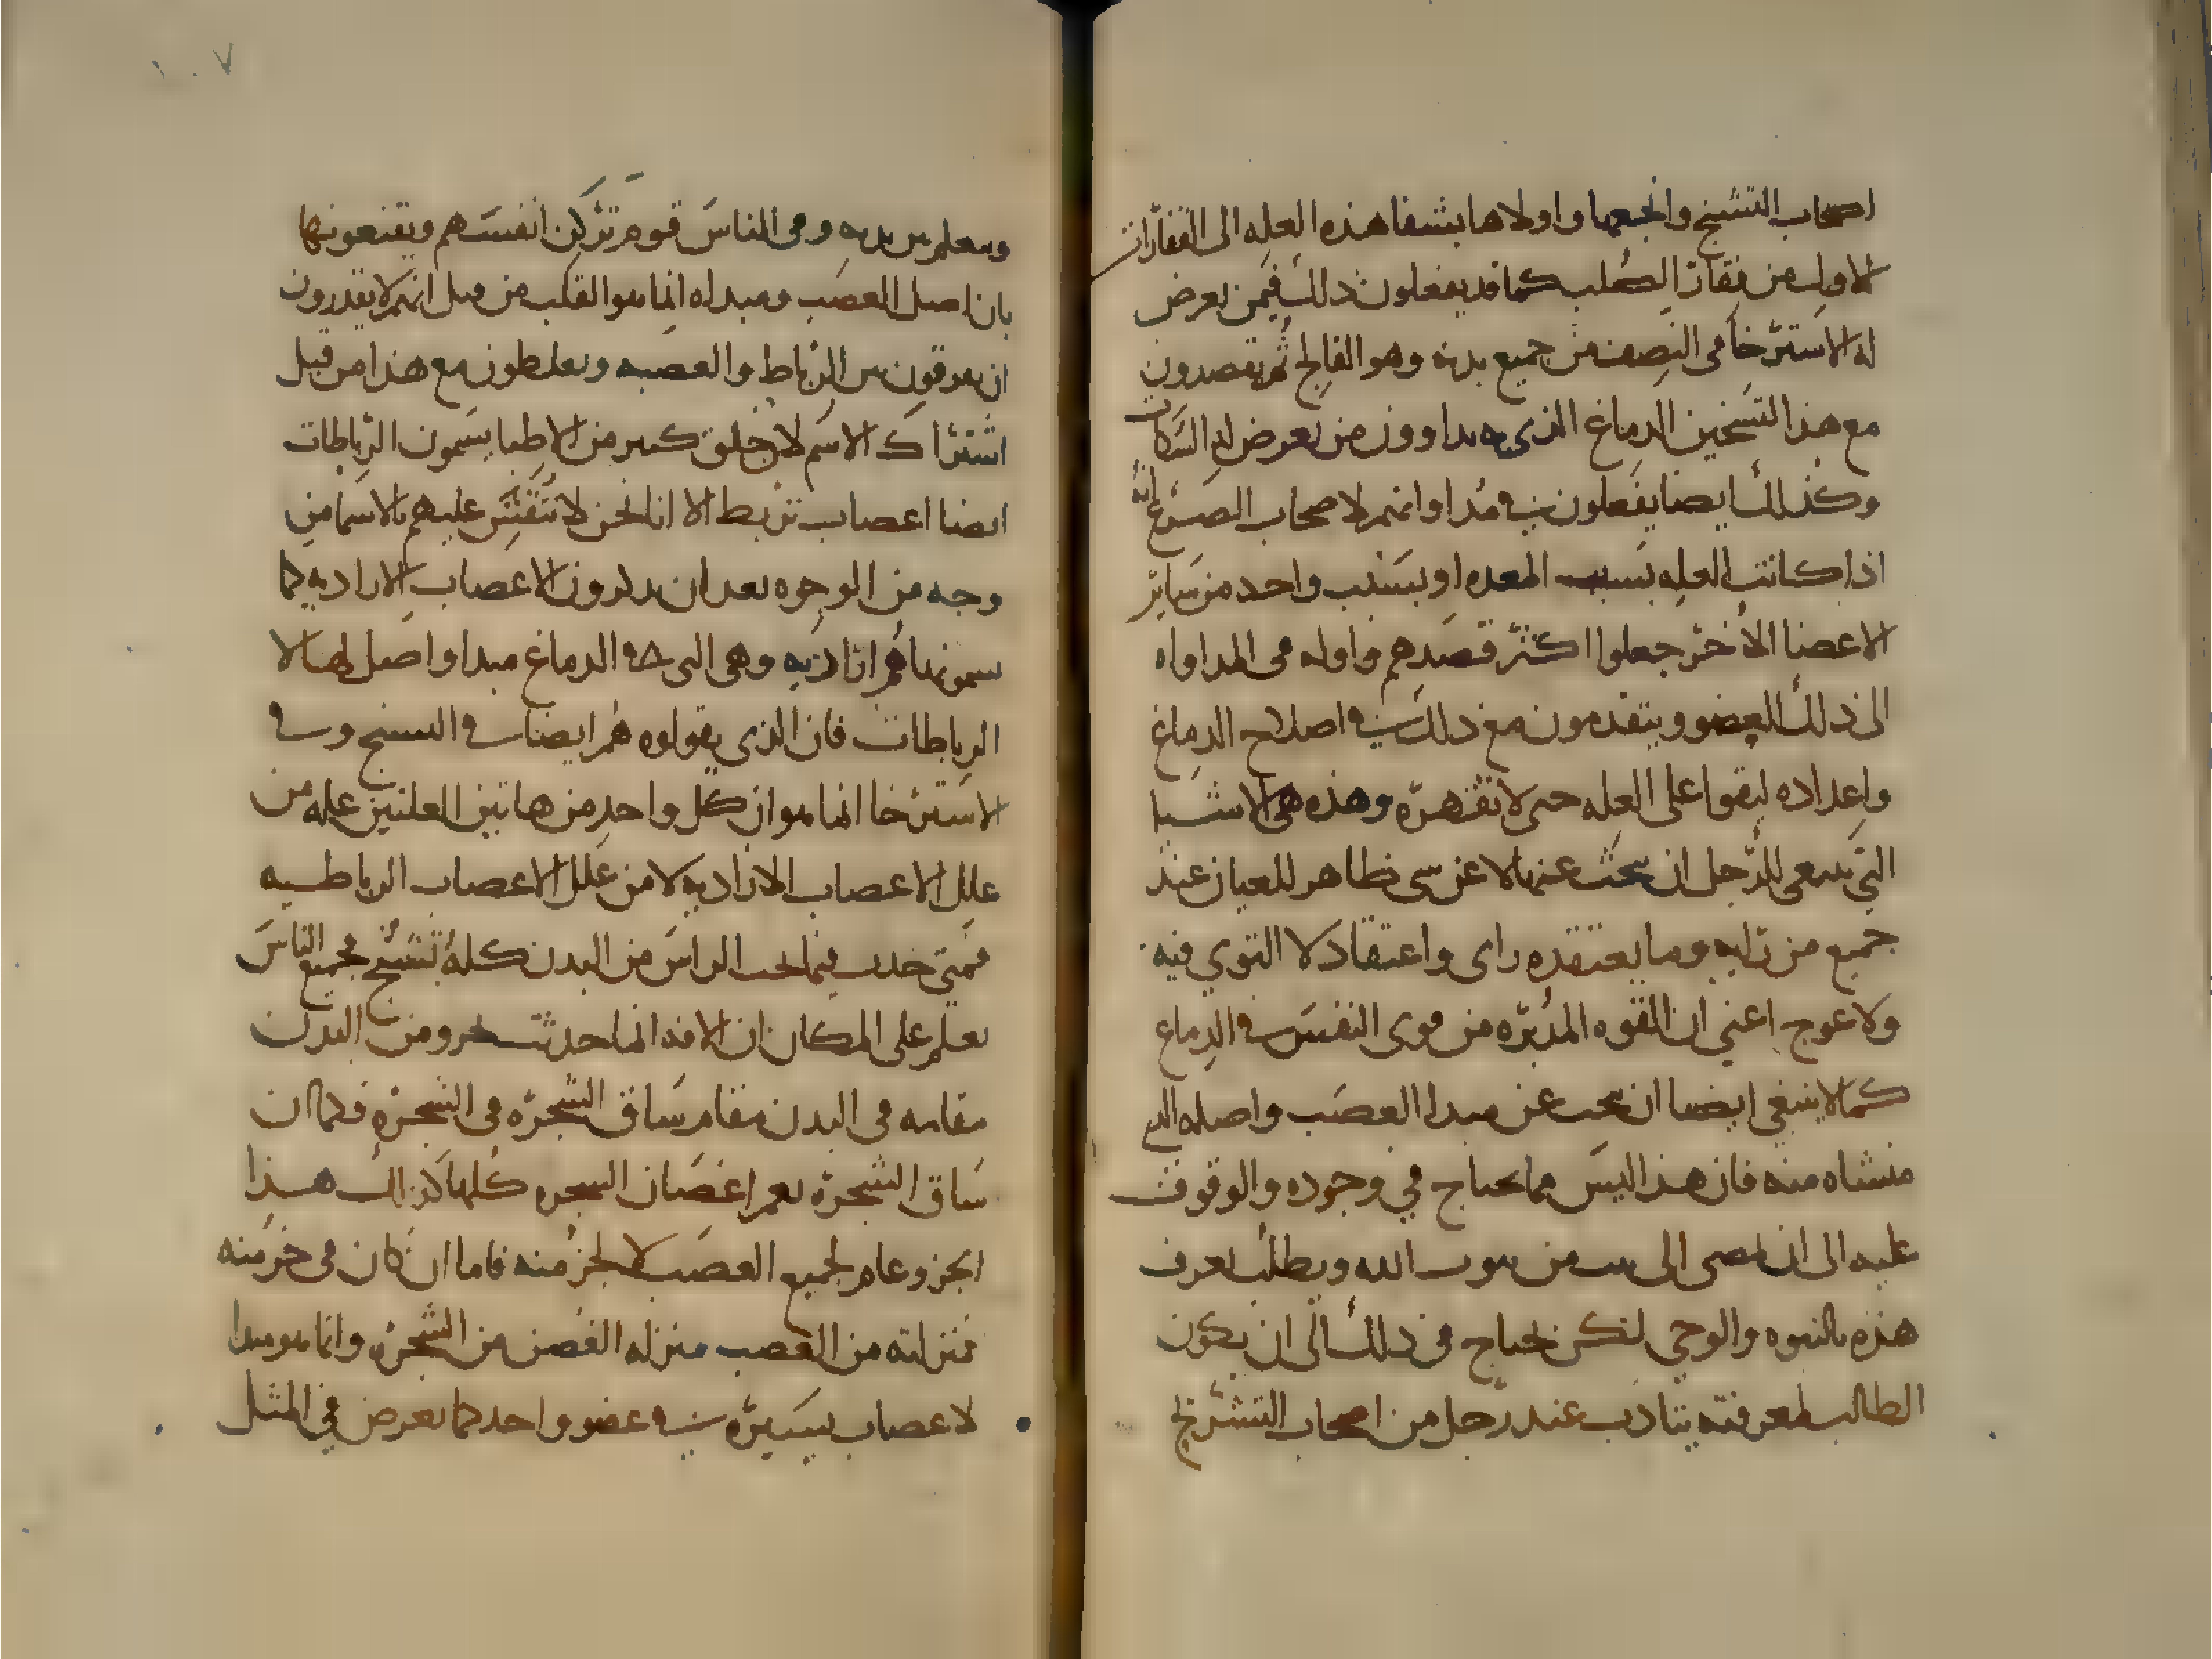 اصحاب التشنج وانجعها واولاها بشفا هذه العله الى الفقارات
الاول من فقار الصلب كما قد يفعلون ذلك فيمن يعرض
له الاسترخا في النصف من جميع بدنه وهو الفالج ثم يقصدون
مع هذا لتسخين الدماغ الذي به يداوون من يعرض له السكات
وكذلك ايضا يفعلون في مداواتهم لاصحاب الصرع فانه
اذا كانت العله بسبب المعده او بسبب واحد من سائر
الاعضا الاخر جعلوا اكثر قصدهم واوله في المداواه
الى ذلك العضو ويتقدمون مع ذلك في اصلاح الدماغ
واعداده ليقوا على العله حتى لا تقهره وهذه هي الاشيا
التي ينبغي للرجل ان يبحث عنها لا عن شي ظاهر للعيان عند
جميع من راه وما يعتقده راى واعتقاد لا التوي فيه
ولا عوج اعني ان القوه المدبره من قوى النفس في الدماغ
كما لا ينبغي ايضا ان يبحث عن مبدا العصب واصله الذي
منشاه منه فان هذا ليس مما يحتاج في وجوده والوقوف
عليه الى ان يمضي الى بيت من بيوت الله ويطلب تعرف
هذه بالنبوه والوحي لكن يحتاج في ذلك الى ان يكون
الطالب لمعرفته يتادب عند رجل من اصحاب التشريح
١٠٧
ويتعلم من يديه وفي الناس قوم تركن انفسهم ويقنعونها
بان اصل العصب ومبداه انما هو القلب من قبل انهم لا يقدرون
ان يفرقون بين الرباط والعصبه ويغلطون مع هذا من قبل
اشتراك الاسم لا خلق كثير من الاطبا يسمون الرباطات
ايضا اعصاب تربط الا انا نحن لا نفتش عليهم بالاسما من
وجه من الوجوه بعد ان يذكرون الاعصاب الاراديه كما
يسمونها هم اراديه وهي التي الدماغ مبدا واصل لها لا
الرباطات فان الذي يقولوه هم ايضا في التشنج وفي
الاسترخا انما هو ان كل واحد من هاتين العلتين عله من
علل الاعصاب الاراديه لا من علل الاعصاب الرباطيه
فمتى حدث فيما تحت الراس من البدن كله تشنج فجميع الناس
يعلم على المكان ان الافه انما حدثت بجزو من البدن
مقامه في البدن مقام ساق الشجره في الشجره فكما ان
ساق الشجره يعم اغصان الشجره كلها كذلك هذا
الجزو عام لجميع العصب لا لجز منه فاما ان كان في جز منه
منزلته من العصب منزله الغصن من الشجره وانما هو مبدا
لاعصاب يسيره في عضو واحد كما يعرض في المثل